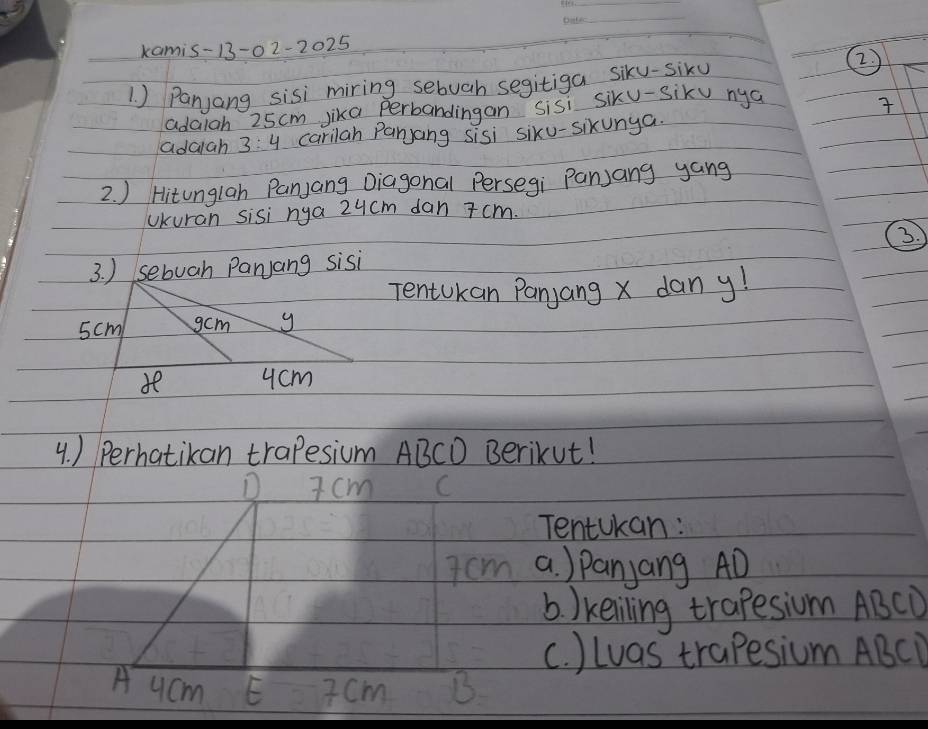 No.
Date:
Kamis-13-02-2025
1.) Panjang sisi miring sebuah segitiga siku-siku
adalah 25cm jika Perbandingan sisi siku-siku nya
adalah 3:4 carilah Panjang sisi siku-sikunya.
2.) Hitunglah Panjang Diagonal Persegi Panjang yang
ukuran sisi nya 24cm dan 7cm.
3.) sebuah Panjang sisi
Tentukan Panjang x dan y!
5cm 9cm y
x 4cm
4.) Perhatikan trapesium ABCD Berikut!
D 7cm C
Tentukan:
7cm a.) Panjang AD
b.) keliling trapesium ABCD
c.) Luas trapesium ABCD
A 4cm E 7cm B
2.
7
3.